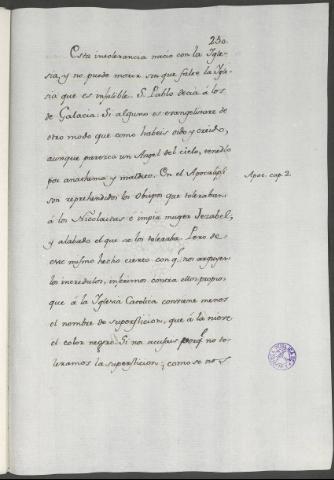 230.
Esta intolerancia nacio con la Igle-
sia, y no puede morir sin que falte la Igle-
sia que es infalible. S. Pablo decia à los
de Galacia: Si alguno os evangelizare de
otro modo que como habeis oido y creido,
aunque paresca un Angel del cielo, tenedlo
por anathema y maldito. En el Apocalipsi
son reprehendidos los Obispos que toleraban
à los Nicolaitas è impia muger Jezabel,
y alabado el que no los toleraba. Pero de
este mismo hecho cierto con q.e nos arguyen
los incredulos, inferimos contra ellos propios,
que à la Iglesia Catolica conviene menos
el nombre de supersticion, que à la nieve
el color negro. Si nos acusais porq.e no to-
leramos la supersticion; como se nos
Apoc. cap. 2.